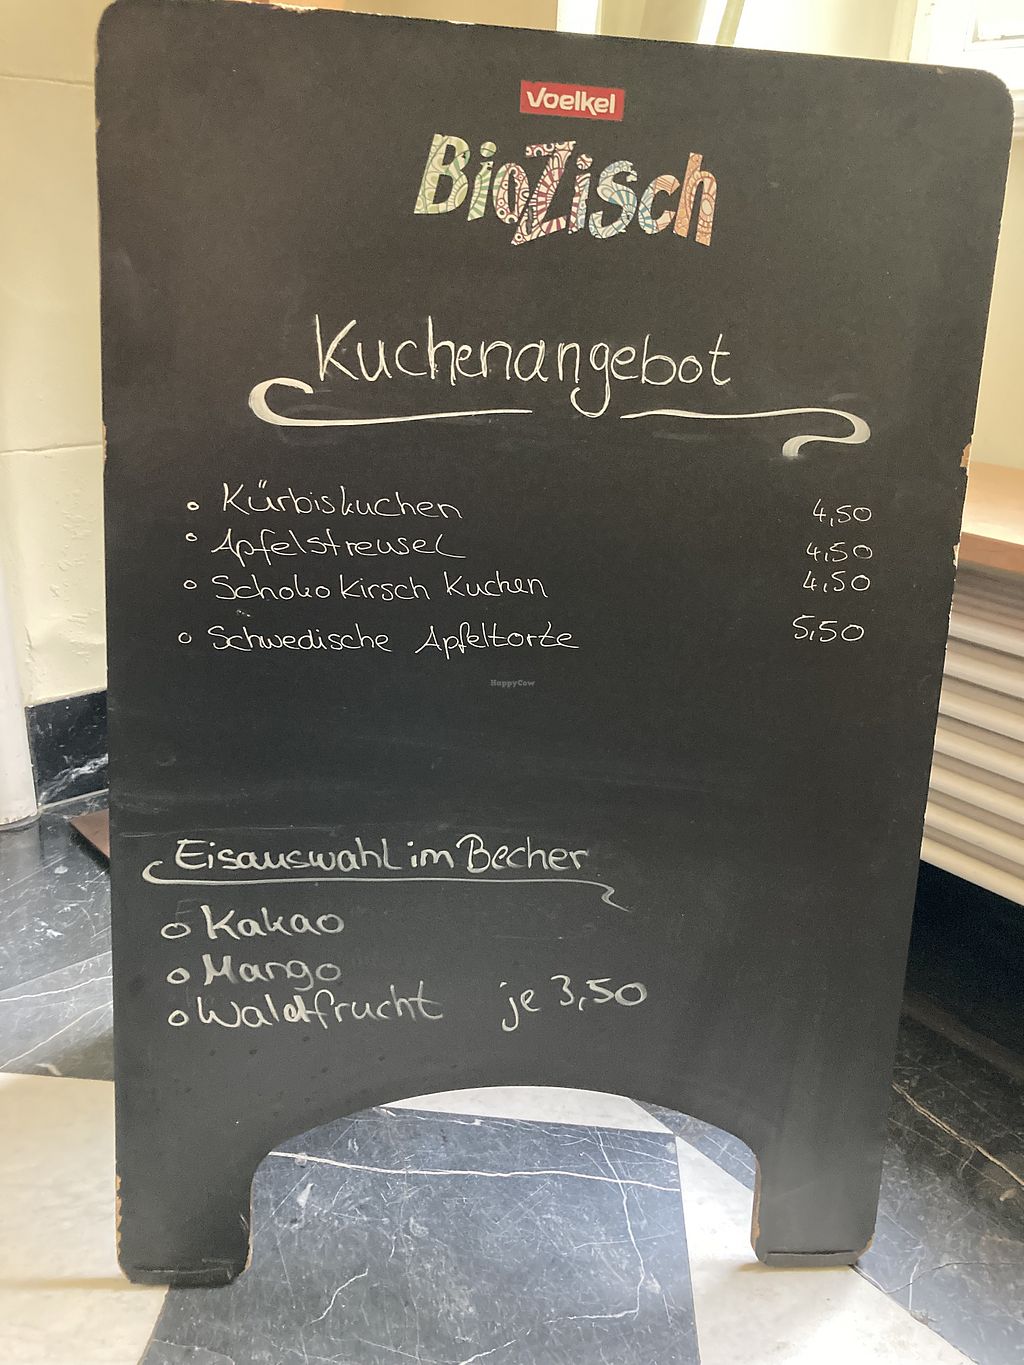 Voelkel
BioZisch
Kuchenangebot
Kürbiskuchen 4,50
Apfelstreusel 4,50
Schoko Kirsch Kuchen 4,50
Schwedische Apfeltorte 5,50
HappyCow
Eisauswahl im Becher
Kakao
Mango
Waldfrucht je 3,50